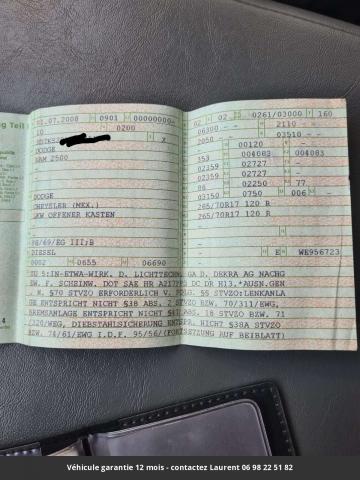 ng Teil
01.07.2008 0901 00000000-
10 0200
X
DODGE
RAM 2500
-
-
DODGE
CHRYSLER (MEX.)
LKW OFFENER KASTEN
-
98/69/EG III;B
DIESEL
0002 0655 06690
02 02 0261/03000 160
06300 - - 2110 - -
2050 - - 03510 - -
00120 - -
353 004083 004083
02359 02727 - -
02359 02727 - -
86 02250 77
03150 0750 006 -
265/70R17 120 R
265/70R17 120 R
-
- E WE956723
ZU 5:IN-ETWA-WIRK. D. LICHTTECHN. GA D. DEKRA AG NACHG
DOT SAE HR DC DR H13.*AUSN.GEN
N. §70 STVZO ERFORDERLICH V. FOLG. §§ STVZO:LENKANLA
GE ENTSPRICHT NICHT §38 ABS. 2 STVZO BZW. 70/311/EWG,
BREMSANLAGE ENTSPRICHT NICHT §41 ABS. 18 STVZO BZW. 71
/320/WEG, DIEBSTAHLSICHERUNG ENTSPR. NICHT §38A STVZO
BZW. 74/61/EWG I.D.F. 95/56/(FORTSETZUNG AUF BEIBLATT)
Véhicule garantie 12 mois - contactez Laurent 06 98 22 51 82